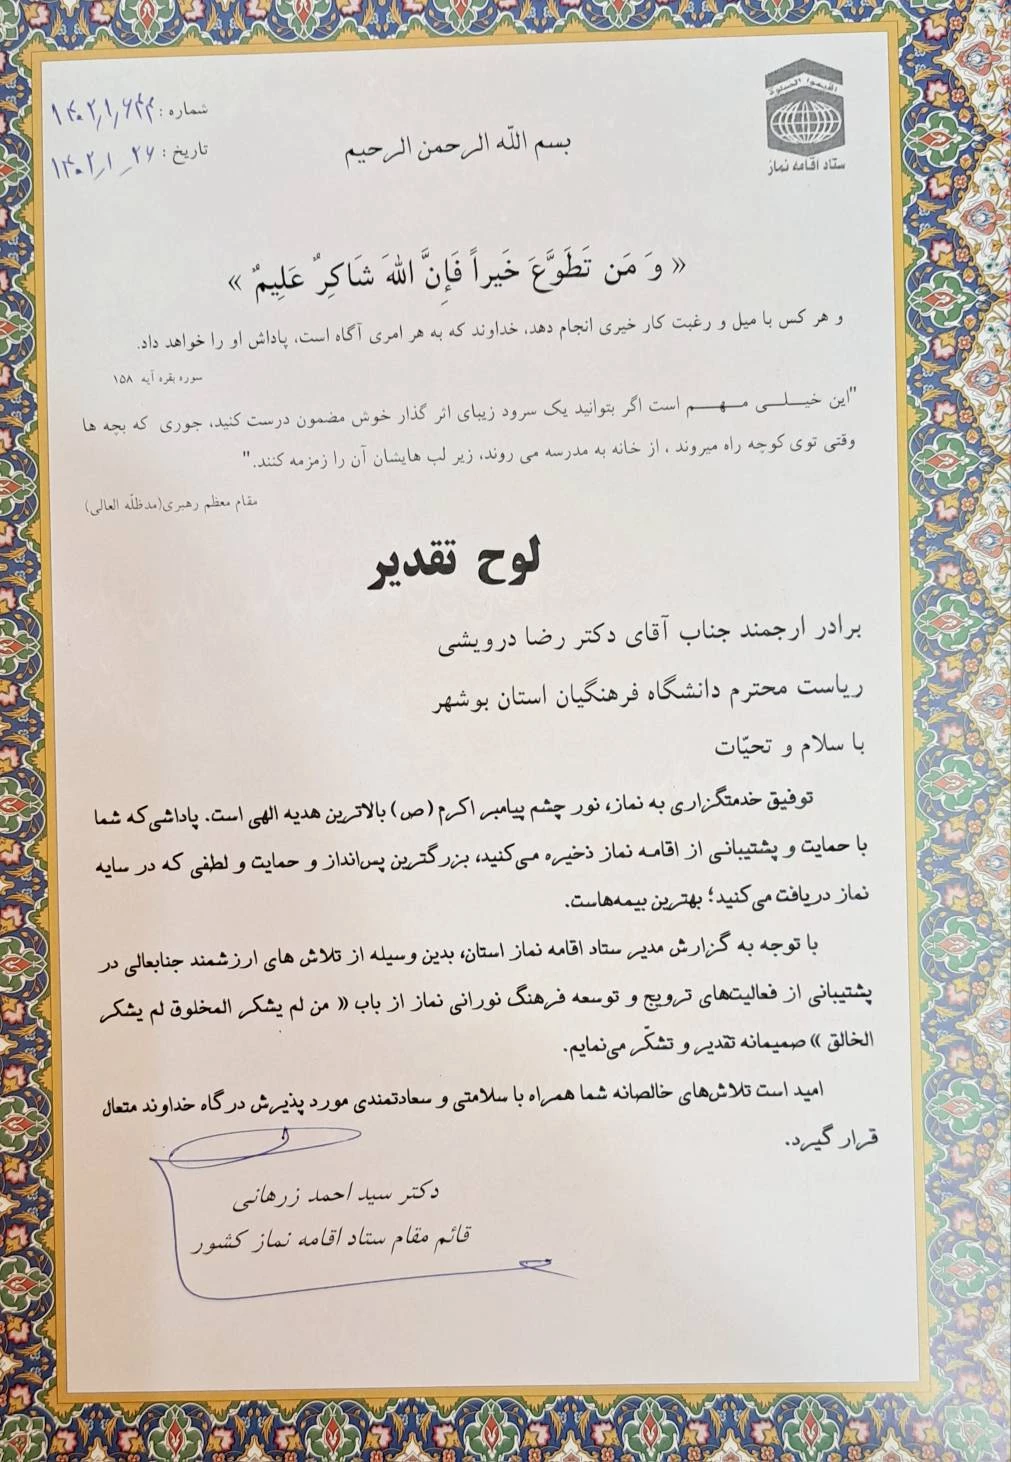 اقیموا الصلوة
ستاد اقامه نماز
شماره : ۱۴۰۲/۱/۶۴۴
تاریخ : ۱۴۰۲/۱_۲۶
بسم اللّه الرحمن الرحیم
« وَ مَن تَطَوَّعَ خَیراً فَإِنَّ اللهَ شَاکِرٌ عَلِیمٌ »
و هر کس با میل و رغبت کار خیری انجام دهد، خداوند که به هر امری آگاه است، پاداش او را خواهد داد.
سوره بقره آیه ۱۵۸
"این خیـــلـــی مـــهـــم است اگر بتوانید یک سرود زیبای اثر گذار خوش مضمون درست کنید، جوری که بچه ها
وقتی توی کوچه راه میروند ، از خانه به مدرسه می روند، زیر لب هایشان آن را زمزمه کنند."
مقام معظم رهبری(مدظلّه العالی)
لوح تقدیر
برادر ارجمند جناب آقای دکتر رضا درویشی
ریاست محترم دانشگاه فرهنگیان استان بوشهر
با سلام و تحیّات
توفیق خدمتگزاری به نماز، نور چشم پیامبر اکرم (ص) بالاترین هدیه الهی است. پاداشی‌که شما
با حمایت و پشتیبانی از اقامه نماز ذخیره می‌کنید، بزرگترین پس‌انداز و حمایت و لطفی که در سایه
نماز دریافت می‌کنید؛ بهترین بیمه‌هاست.
با توجه به گزارش مدیر ستاد اقامه نماز استان، بدین وسیله از تلاش های ارزشمند جنابعالی در
پشتیبانی از فعالیت‌های ترویج و توسعه فرهنگ نورانی نماز از باب « من لم یشکر المخلوق لم یشکر
الخالق » صمیمانه تقدیر و تشکّر می‌نمایم.
امید است تلاش‌های خالصانه شما همراه با سلامتی و سعادتمندی مورد پذیرش درگاه خداوند متعال
قرار گیرد.
دکتر سید احمد زرهانی
قائم مقام ستاد اقامه نماز کشور